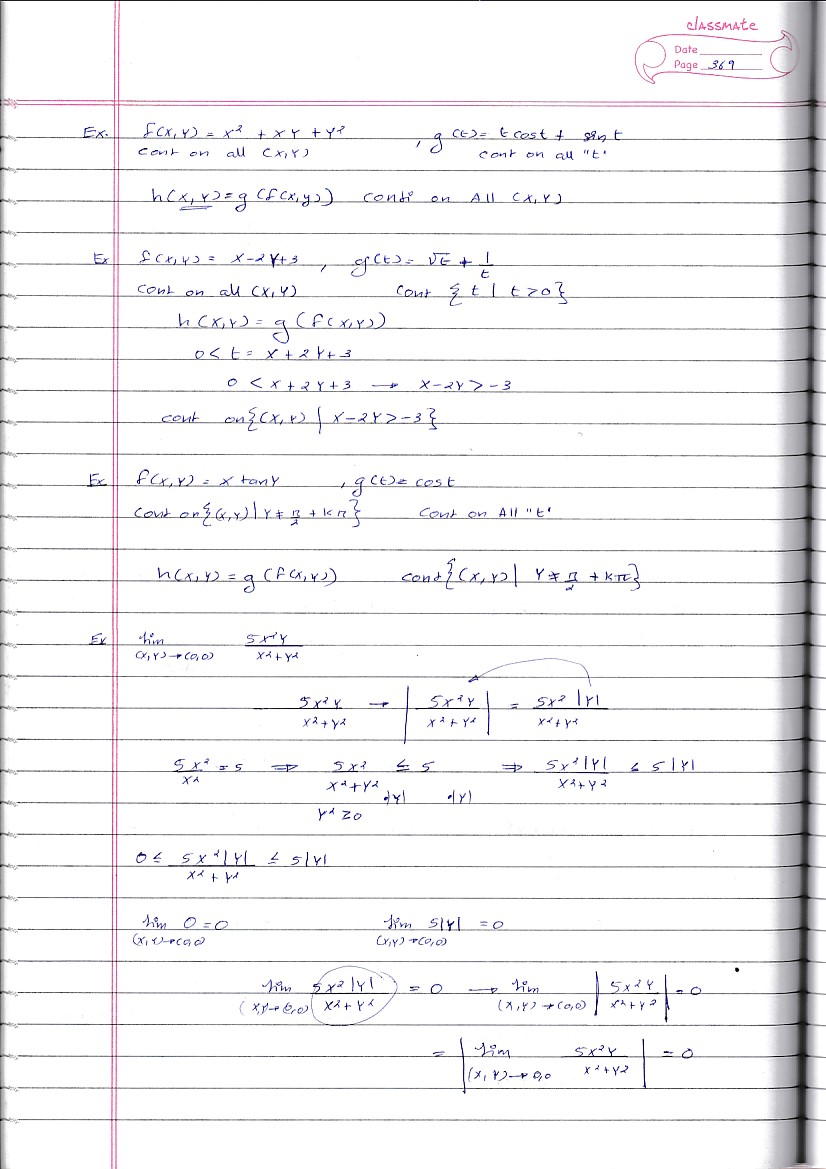 classmate
Date
Page 369
Ex. f(x,y) = x² + xy + y² , g(t) = t cost + sin t
cont on all (x,y) cont on all "t"
h(x,y) = g (f(x,y)) conti on All (x,y)
Ex f(x,y) = x-2y+3 , g(t) = √t + 1/t
cont on all (x,y) cont { t | t>0 }
h(x,y) = g (f(x,y))
0 < t = x + 2y + 3
0 < x + 2y + 3 → x-2y > -3
cont on {(x,y) | x-2y > -3}
Ex f(x,y) = x tany , g(t) = cost
cont on {(x,y) | y ≠ π/2 + kπ} cont on All "t"
h(x,y) = g (f(x,y)) cont {(x,y) | y ≠ π/2 + kπ}
Ex lim (x,y)→(0,0) 5x²y / x²+y²
5x²y / x²+y² → | 5x²y / x²+y² | = 5x² |y| / x²+y²
5x² / x² = 5 ⇒ 5x² / x²+y² ≤ 5 ⇒ 5x²|y| / x²+y² ≤ 5|y|
•|y| •|y|
y² ≥ 0
0 ≤ 5x²|y| / x²+y² ≤ 5|y|
lim (x,y)→(0,0) 0 = 0 lim (x,y)→(0,0) 5|y| = 0
lim (x,y→0,0) 5x²|y| / x²+y² = 0 → lim (x,y)→(0,0) | 5x²y / x²+y² | = 0
= | lim (x,y)→0,0 5x²y / x²+y² | = 0